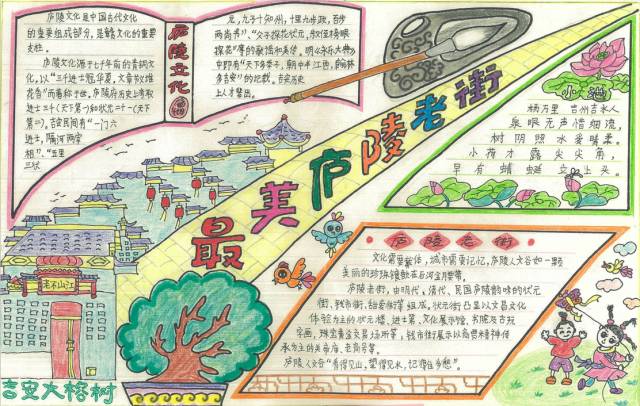 最美庐陵老街
庐陵文化
庐陵文化是中国古代文化
的重要组成部分,是赣文化的重要
支柱。
庐陵文化源于七千年前的青铜文
化,以“三千进士冠华夏,文章节义堆
花香”而著称于世。庐陵府历史上考取
进士三千(天下第一)和状元二十一(天下
第二)。吉安民间有“一门六
进士,隔河两宰
相”、“五里
三状
元,九子十知州,十里九布政,百步
两尚书”、“父子探花状元,叔侄榜眼
探花”等的歌谣和美传。明《永乐大典》
中即有“天下多君子,朝中半江西,翰林
多吉安”的记载。吉安历史
上人才辈出。
小池
杨万里 吉州吉水人
泉眼无声惜细流,
树阴照水爱晴柔。
小荷才露尖尖角,
早有蜻蜓立上头。
庐陵老街
文化需要载体,城市需要记忆,庐陵人文谷如一颗
美丽的珍珠镶嵌在后河金腰带。
庐陵老街,由明代、清代、民国庐陵韵味的状元
街、钱市街、组成,状元街凸显以文昌文化
体验为主的状元楼、进士第、文化展示馆、书院及古玩
字画,珠宝黄金交易场所等;钱市街展示以商贾精神传
承为主的关帝庙、老商号等。
庐陵人文谷“看得见山,望得见水,记得住乡愁”。
老不山江
吉安大榕树